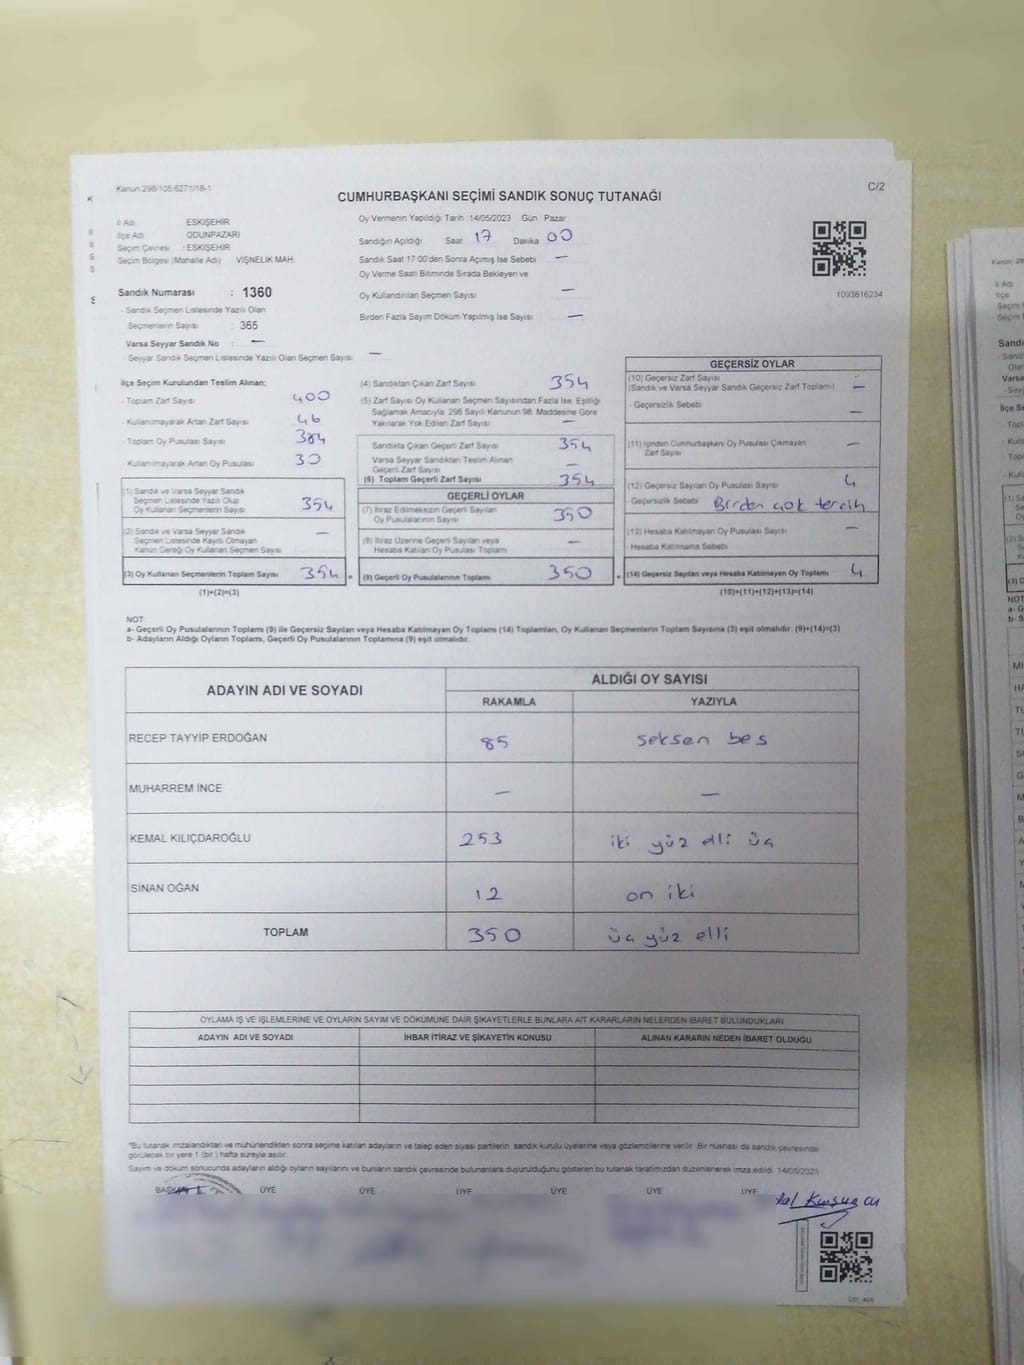 Kanun:298/105;6271/18-1
C/2
CUMHURBAŞKANI SEÇİMİ SANDIK SONUÇ TUTANAĞI
İl Adı ESKİŞEHİR
İlçe Adı ODUNPAZARI
Seçim Çevresi : ESKİŞEHİR
Seçim Bölgesi (Mahalle Adı) VİŞNELİK MAH.
Sandık Numarası : 1360
- Sandık Seçmen Listesinde Yazılı Olan
Seçmenlerin Sayısı : 365
Varsa Seyyar Sandık No : —
- Seyyar Sandık Seçmen Listesinde Yazılı Olan Seçmen Sayısı —
Oy Vermenin Yapıldığı Tarih 14/05/2023 Gün Pazar
Sandığın Açıldığı Saat 17 Dakika 00
Sandık Saat 17:00'den Sonra Açımış İse Sebebi —
Oy Verme Saati Bitiminde Sırada Bekleyen ve
Oy Kullandırılan Seçmen Sayısı —
Birden Fazla Sayım Döküm Yapılmış İse Sayısı —
1093816234
İlçe Seçim Kurulundan Teslim Alınan;
- Toplam Zarf Sayısı 400
- Kullanılmayarak Artan Zarf Sayısı 46
- Toplam Oy Pusulası Sayısı 384
- Kullanılmayarak Artan Oy Pusulası 30
(1) Sandık ve Varsa Seyyar Sandık
Seçmen Listesinde Yazılı Olup
Oy Kullanan Seçmenlerin Sayısı 354
(2) Sandık ve Varsa Seyyar Sandık
Seçmen Listesinde Kayıtlı Olmayan
Kanun Gereği Oy Kullanan Seçmen Sayısı —
(3) Oy Kullanan Seçmenlerin Toplam Sayısı 354
(1)+(2)=(3)
=
(4) Sandıktan Çıkan Zarf Sayısı 354
(5) Zarf Sayısı Oy Kullanan Seçmen Sayısından Fazla İse, Eşitliği
Sağlamak Amacıyla 298 Sayılı Kanunun 98. Maddesine Göre
Yakılarak Yok Edilen Zarf Sayısı —
Sandıkta Çıkan Geçerli Zarf Sayısı 354
Varsa Seyyar Sandıktan Teslim Alınan
Geçerli Zarf Sayısı —
(6) Toplam Geçerli Zarf Sayısı 354
GEÇERLİ OYLAR
(7) İtiraz Edilmeksizin Geçerli Sayılan
Oy Pusulalarının Sayısı 350
(8) İtiraz Üzerine Geçerli Sayılan veya
Hesaba Katılan Oy Pusulası Toplamı —
(9) Geçerli Oy Pusulalarının Toplamı 350
+
GEÇERSİZ OYLAR
(10) Geçersiz Zarf Sayısı
(Sandık ve Varsa Seyyar Sandık Geçersiz Zarf Toplamı) —
- Geçersizlik Sebebi —
(11) İçinden Cumhurbaşkanı Oy Pusulası Çıkmayan
Zarf Sayısı —
(12) Geçersiz Sayılan Oy Pusulası Sayısı 4
- Geçersizlik Sebebi Birden çok tercih
(13) Hesaba Katılmayan Oy Pusulası Sayısı —
- Hesaba Katılmama Sebebi
(14) Geçersiz Sayılan veya Hesaba Katılmayan Oy Toplamı 4
(10)+(11)+(12)+(13)=(14)
NOT:
a- Geçerli Oy Pusulalarının Toplamı (9) ile Geçersiz Sayılan veya Hesaba Katılmayan Oy Toplamı (14) Toplamları, Oy Kullanan Seçmenlerin Toplam Sayısına (3) eşit olmalıdır. (9)+(14)=(3)
b- Adayların Aldığı Oyların Toplamı, Geçerli Oy Pusulalarının Toplamına (9) eşit olmalıdır.
ADAYIN ADI VE SOYADI ALDIĞI OY SAYISI
RAKAMLA YAZIYLA
RECEP TAYYİP ERDOĞAN 85 seksen beş
MUHARREM İNCE — —
KEMAL KILIÇDAROĞLU 253 iki yüz elli üç
SİNAN OĞAN 12 on iki
TOPLAM 350 üç yüz elli
OYLAMA İŞ VE İŞLEMLERİNE VE OYLARIN SAYIM VE DÖKÜMÜNE DAİR ŞİKAYETLERLE BUNLARA AİT KARARLARIN NELERDEN İBARET BULUNDUKLARI
ADAYIN ADI VE SOYADI İHBAR İTİRAZ VE ŞİKAYETİN KONUSU ALINAN KARARIN NEDEN İBARET OLDUĞU
*Bu tutanak imzalandıktan ve mühürlendikten sonra seçime katılan adayların ve talep eden siyasi partilerin sandık kurulu üyelerine veya gözlemcilerine verilir. Bir nüshası da sandık çevresinde
görülecek bir yere 1 (bir) hafta süreyle asılır.
Sayım ve döküm sonucunda adayların aldığı oyların sayılarını ve bunların sandık çevresinde bulunanlara duyurulduğunu gösteren bu tutanak tarafımızdan düzenlenerek imza edildi. 14/05/2023
BAŞKAN ÜYE ÜYE ÜYE ÜYE ÜYE ÜYE